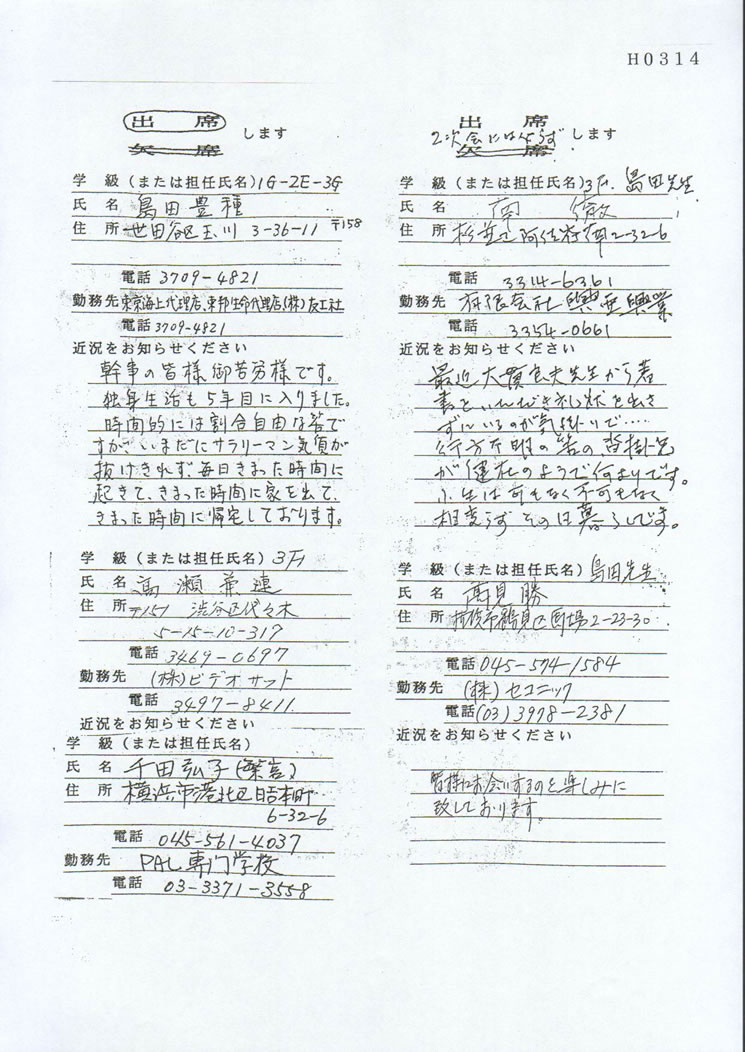 H0314
出席
欠席 します
学 級（または担任氏名）1G-2E-3G
氏 名 島田豊穂
住 所 世田谷区玉川 3-36-11 〒158
電話 3709-4821
勤務先 東京海上代理店、東邦生命代理店、(株)友工社
電話 3709-4821
近況をお知らせください
幹事の皆様御苦労様です。
独身生活も5年目に入りました。
時間的には割合自由な筈で
すがいまだにサラリーマン気質が
抜けきれず、毎日きまった時間に
起きて、きまった時間に家を出て、
きまった時間に帰宅しております。
学 級（または担任氏名）3F
氏 名 高瀬
住 所 〒151 渋谷区代々木
5-15-10-317
電話 3469-0697
勤務先 (株)ビデオサット
電話 3497-8411
近況をお知らせください
学 級（または担任氏名）
氏 名 千田弘子
住 所 横浜市港北区日吉本町
6-32-6
電話 045-561-4037
勤務先 PAL専門学校
電話 03-3371-3558
出席
2次会には
欠席 します
学 級（または担任氏名）3F. 島田先生
氏 名 南 徹
住 所 杉並区阿佐谷南2-32-6
電話 3314-6361
勤務先 有限会社 興亜興業
電話 3354-0661
近況をお知らせください
最近大須良夫先生から著
書を
ずにいるのが気掛りで……
行方不明の筈の
が健在のようで何よりです。
小生は可もなく不可もなく
相変らずその日暮らしです。
学 級（または担任氏名）島田先生
氏 名 高見 勝
住 所 横浜市鶴見区馬場2-23-30
電話 045-574-1584
勤務先 (株)セコニック
電話 (03)3978-2381
近況をお知らせください
皆様にお会いするのを楽しみに
致しております。